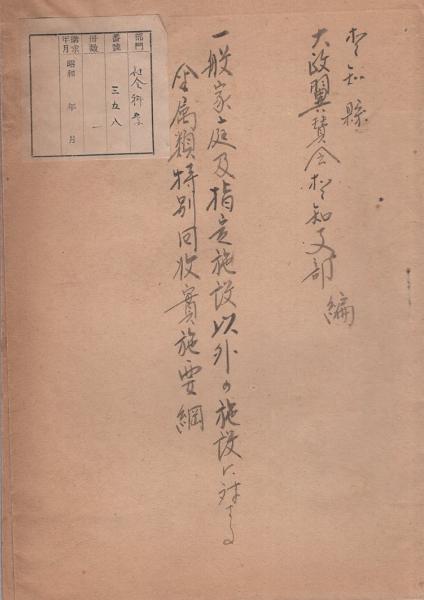 知縣
大政翼賛会知支部 編
一般家庭及指定施設以外の施設に対する
金属類特別回收實施要綱
部門 社会科学
番號 三五八
冊数 一
購求年月 昭和 年 月